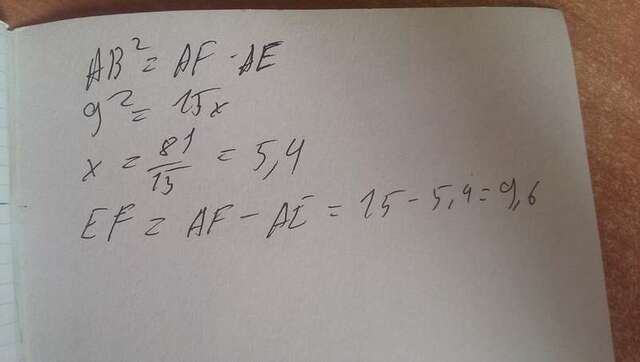 AB² = AF · AE
9² = 15x
x = 81/15 = 5,4
EF = AF - AE = 15 - 5,4 = 9,6